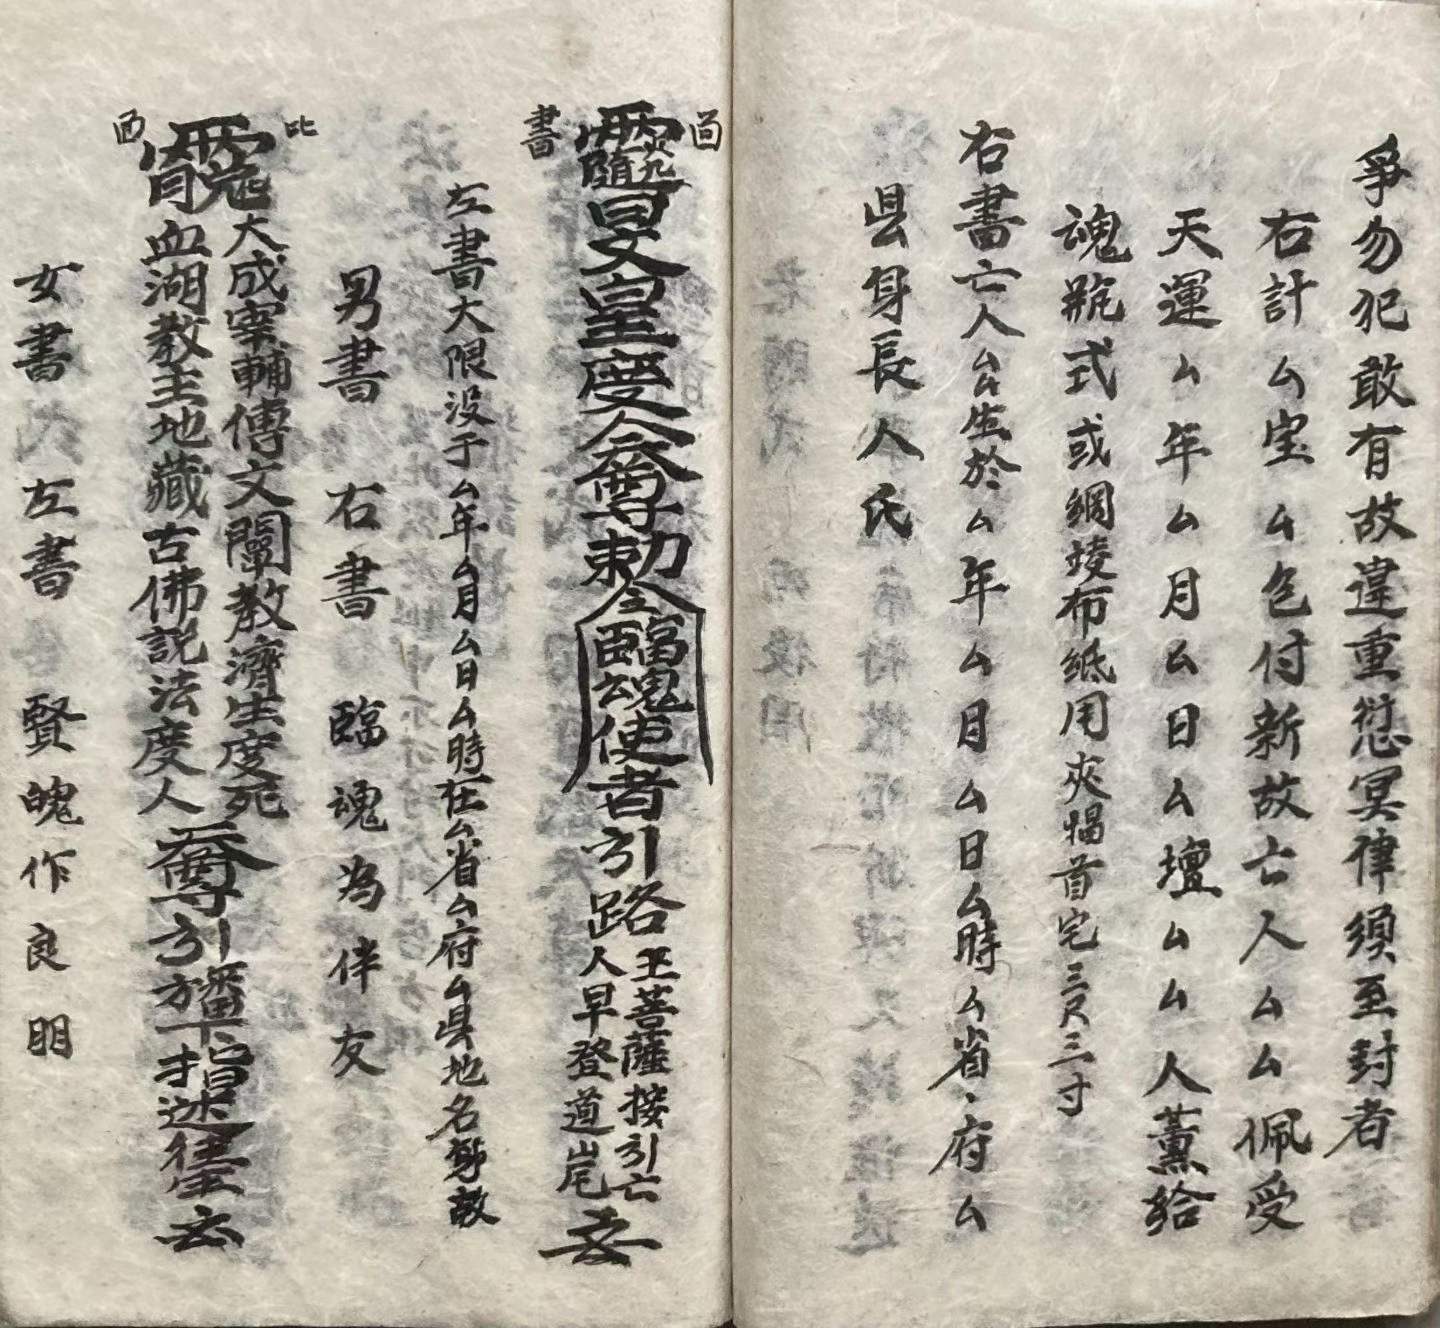 爭勿犯敢有故違重愆冥律須至封者
右計厶宝厶色付新故亡人厶厶佩受
天運厶年厶月厶日厶壇厶厶人薰給
魂旐式或綢绫布紙用夾惕首宅三尺三寸
右書亡人厶生於厶年厶月厶日厶時厶省、府厶
县身長人氏
啚
書
文皇度人尊勅令臨魂使者引路
菩薩接引亡
人早登道岸
左書大限没于厶年厶月厶日厶時在厶省厶府厶县地名
男書 右書 臨魂為伴友
比
大成宰輔傳文闡教濟生度死
血湖教主地藏古佛説法度人
尊引旛下指述往
女書 左書 賢魄作良朋